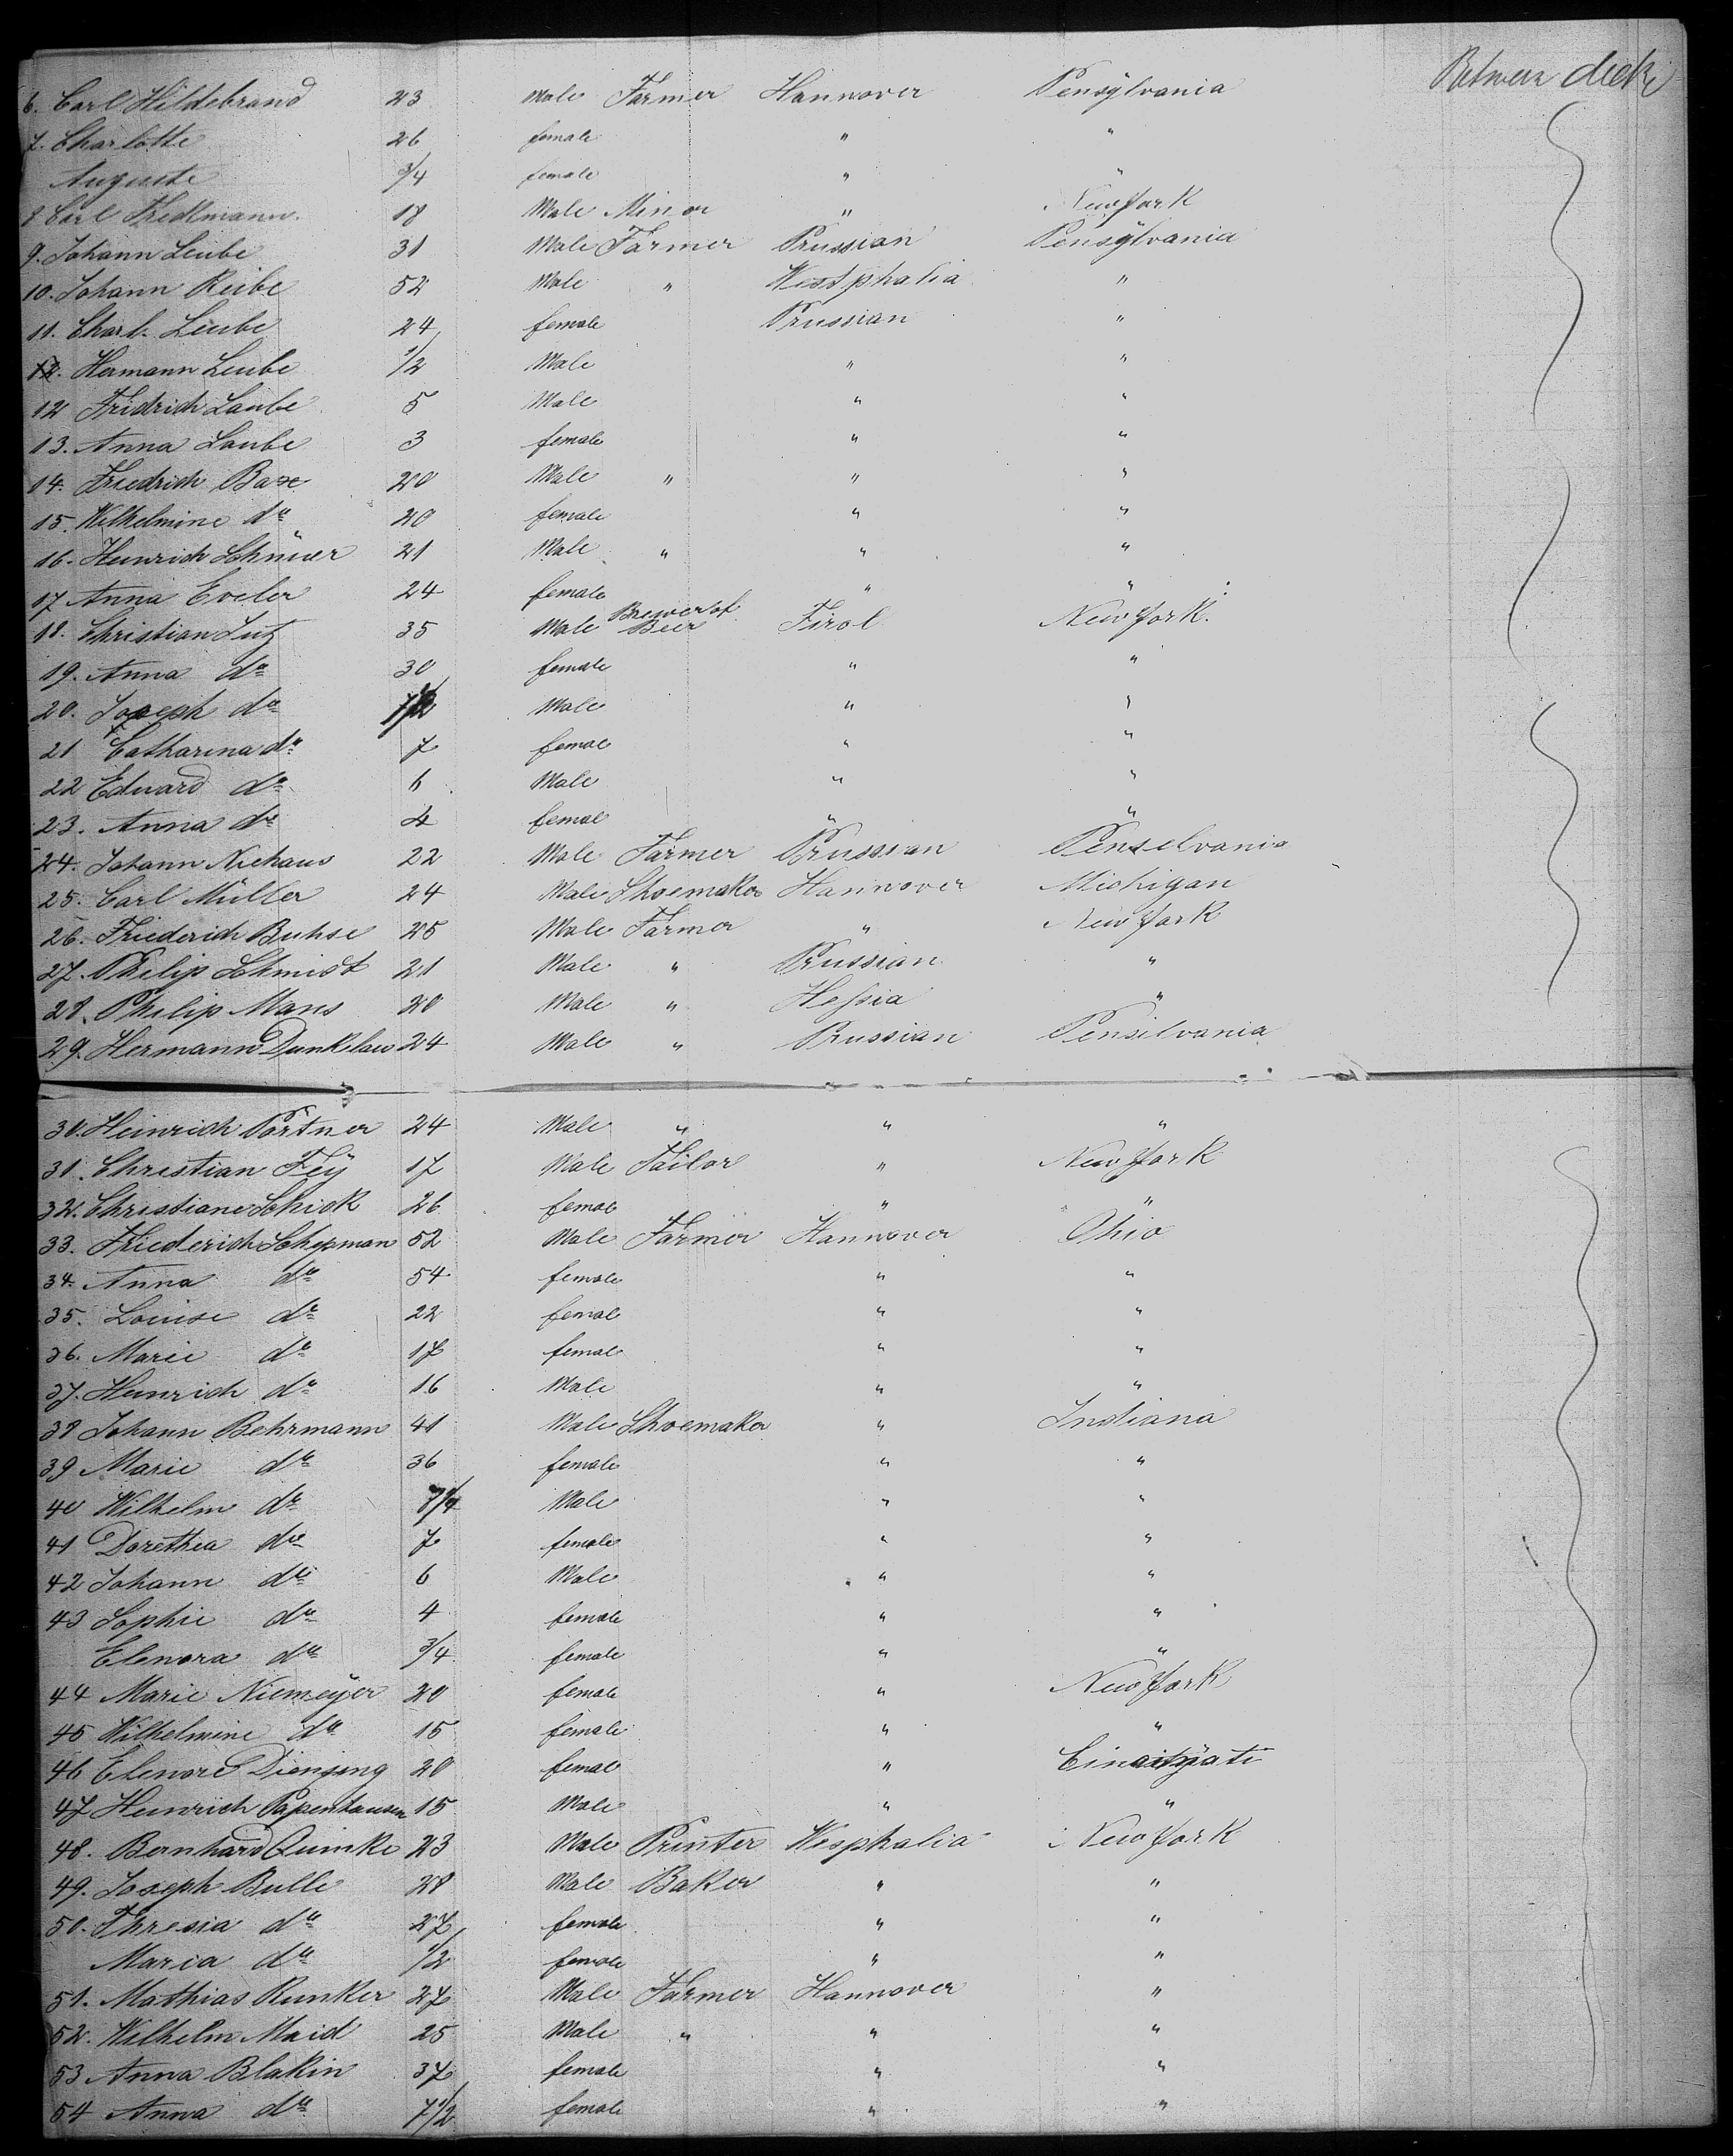 Between deck
6. Carl Hildebrand 23 Male Farmer Hannover Pensylvania
7. Charlotte 26 female " "
Auguste 3/4 female " "
8 Carl 18 Male Minor " New York
9. Johann Leube 31 Male Farmer Prussian Pensylvania
10. Johann Reibe 52 Male " Westphalia "
11. Charl. Leube 24 female Prussian "
12. Hermann Leube 1/2 Male " "
12 Fridrich Laube 5 Male " "
13. Anna Laube 3 female " "
14. Friedrich Baxe 20 Male " " "
15. Wilhelmine do 20 female " "
16. Heinrich 21 Male " " "
17 Anna Eveler 24 female " "
18. Christian Lutz 35 Male Brewer of Beer Tirol New York.
19. Anna do 30 female " "
20. Joseph do Male " "
21 Catharina do 7 female " "
22 Eduard do 6 Male " "
23. Anna do 4 female " "
24. Johann Niehaus 22 Male Farmer Prussian Penselvania
25. Carl Müller 24 Male Shoemaker Hannover Michigan
26. Friederich Buhse 25 Male Farmer " New York
27. Philip Schmidt 21 Male " Prussian "
28. Philip Mans 20 Male " Hessia "
29. Hermann Dunklau 24 Male " Prussian Pensilvania
30. Heinrich Pörtner 24 Male " " "
31. Christian Feÿ 17 Male Tailor " New York
32. Christiane Schick 26 female " "
33. Friederich Schepman 52 Male Farmer Hannover Ohio
34. Anna do 54 female " "
35. Louise do 22 female " "
36. Marie do 17 female " "
37. Heinrich do 16 Male " "
38 Johann Behrmann 41 Male Shoemaker " Indiana
39 Marie do 36 female " "
40 Wilhelm do Male " "
41 Dorethea do 7 female " "
42 Johann do 6 Male " "
43 Sophie do 4 female " "
Elenora do 3/4 female " "
44 Marie Niemeÿer 20 female " New York
45 Wilhelmine do 15 female " "
46 Elenore 20 female "
47 Heinrich Papenhausen 15 Male " "
48. Bernhard Quinke 23 Male Printer Wesphalia New York
49. Joseph Bulle 28 Male Baker " "
50. Thresia do 27 female " "
Maria do 1/2 female " "
51. Mathias Runker 27 Male Farmer Hannover "
52. Wilhelm Maid 25 Male " " "
53 Anna Blakin 37 female " "
54 Anna do 7 1/2 female " "